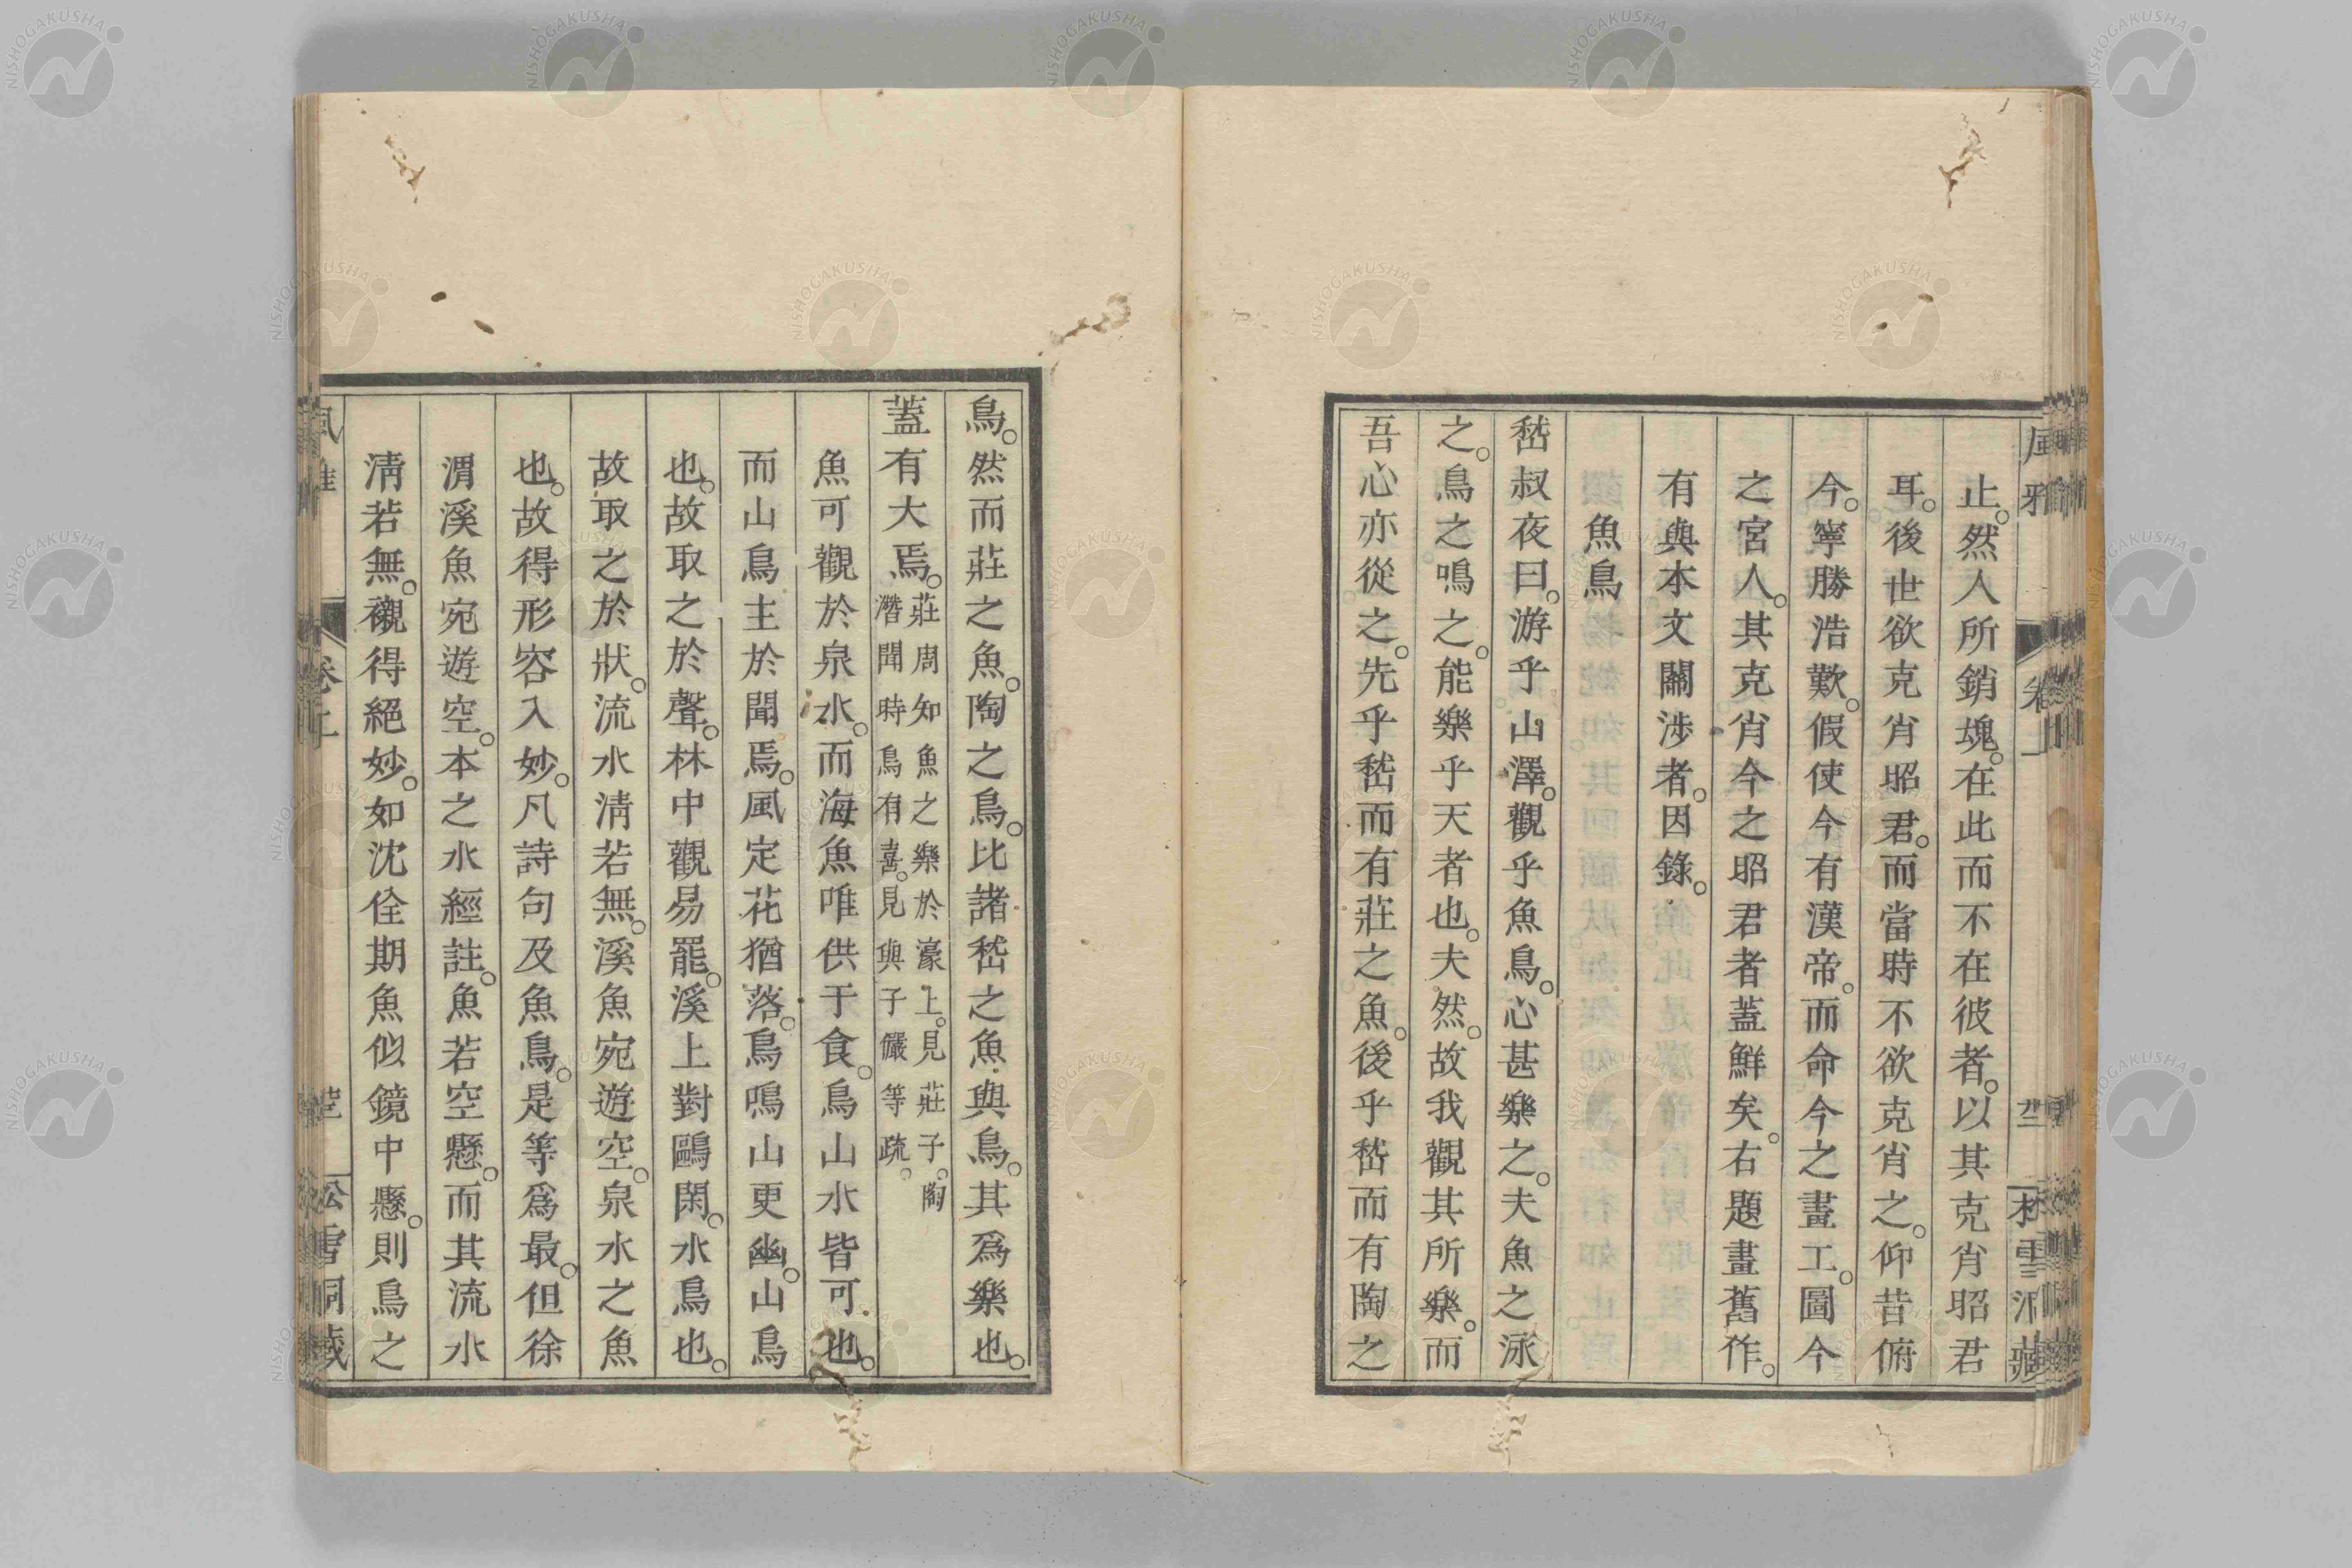 止。然人所銷塊。在此而不在彼者。以其克肖昭君
耳。後世欲克肖昭君。而當時不欲克肖之。仰昔俯
今。寧勝浩歎。假使今有漢帝。而命今之畫工。圖今
之宮人。其克肖今之昭君者蓋鮮矣。右題畫舊作。
有與本文關涉者。因錄。
魚鳥
嵆叔夜曰。游乎山澤。觀乎魚鳥。心甚樂之。夫魚之泳
之。鳥之鳴之。能樂乎天者也。夫然。故我觀其所樂。而
吾心亦從之。先乎嵆而有莊之魚。後乎嵆而有陶之
鳥。然而莊之魚。陶之鳥。比諸嵆之魚與鳥。其爲樂也。
蓋有大焉。莊周知魚之樂於濠上。見莊子。陶
潛聞時鳥有喜。見與子儼等疏。
魚可觀於泉水。而海魚唯供于食。鳥山水皆可也。
而山鳥主於聞焉。風定花猶落。鳥鳴山更幽。山鳥
也。故取之於聲。林中觀易罷。溪上對鷗閑。水鳥也。
故取之於狀。流水清若無。溪魚宛遊空。泉水之魚
也。故得形容入妙。凡詩句及魚鳥。是等爲最。但徐
渭溪魚宛遊空。本之水經註。魚若空懸。而其流水
清若無。襯得絕妙。如沈佺期魚似鏡中懸。則鳥之
NISHOGAKUSHA